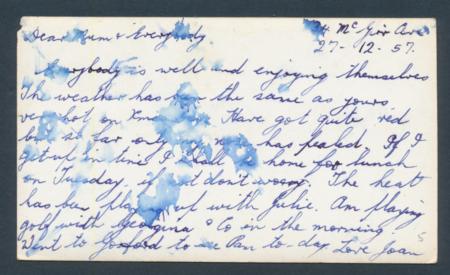 Dear Mum & Everybody
Mc Girr Ave
27-12-57.
Everybody is well and enjoying themselves
The weather has the same as yours
very hot on Xmas Have got quite red
but so far only has pealed. If I
get up in time I shall home for lunch
on Tuesday, if not don't worry. The heat
has been up with Julie. Am playing
golf with Georgina & Co in the morning
Went to Gosford to see Pam to-day Love Joan